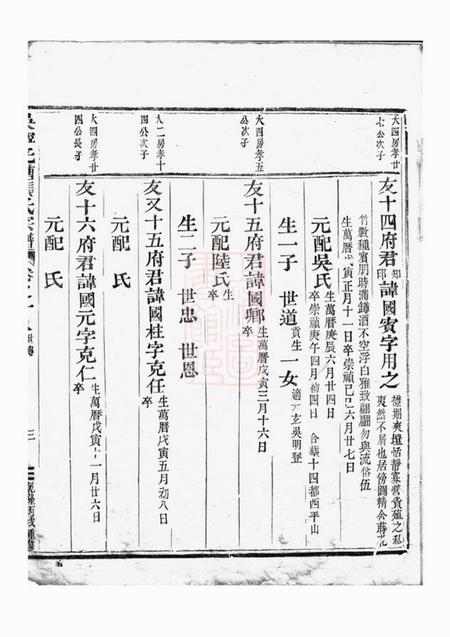 大四房孝廿
七公次子
友十四府君諱國賓字用之
知
印
襟期爽塏恬靜寡營貲殖之私
爽然不屑也居傍闢精舍蒔花
竹數種賓朋時滿罇酒不空浮白雅致翩翩勿與流俗伍
生萬曆戊寅正月十一日卒崇禎己巳六月廿七日
元配吳氏
生萬曆庚辰六月廿四日
卒崇禎庚午四月初四日
合葬十四都西平山
生一子 世道
貢生
一女
適 玄吳明登
大四房孝五
公次子
友十五府君諱國卿
生萬曆戊寅三月十六日
卒
元配陸氏
生
卒
生二子 世忠 世恩
大二房孝十
四公次子
友又十五府君諱國柱字克任
生萬曆戊寅五月初八日
卒
元配 氏
大四房孝廿
四公長子
友十六府君諱國元字克仁
生萬曆戊寅十一月廿六日
卒
元配 氏
三